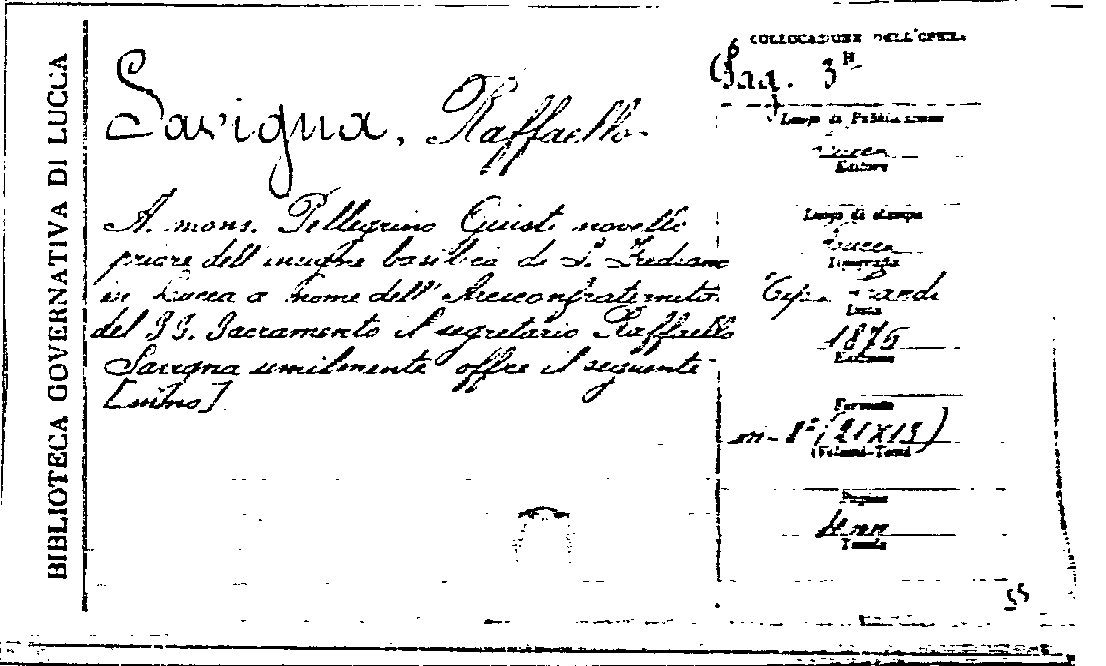 BIBLIOTECA GOVERNATIVA DI LUCCA
Savigna, Raffaello
A mons. Pellegrino Giusti novello
priore dell'insigne basilica di S. Frediano
in Lucca a nome dell'Arciconfraternita
del SS. Sacramento il segretario Raffaello
Savigna umilmente offre il seguente
[inno]
COLLOCAZIONE DELL'OPERA
3
Luogo di Pubblicazione
Lucca
Editore
Luogo di stampa
Lucca
Tipografia
Tip. Landi
Data
1876
Edizione
Formato
in-8° (21X13)
(Volumi-Tomi)
Pagine
4 nn
Tavole